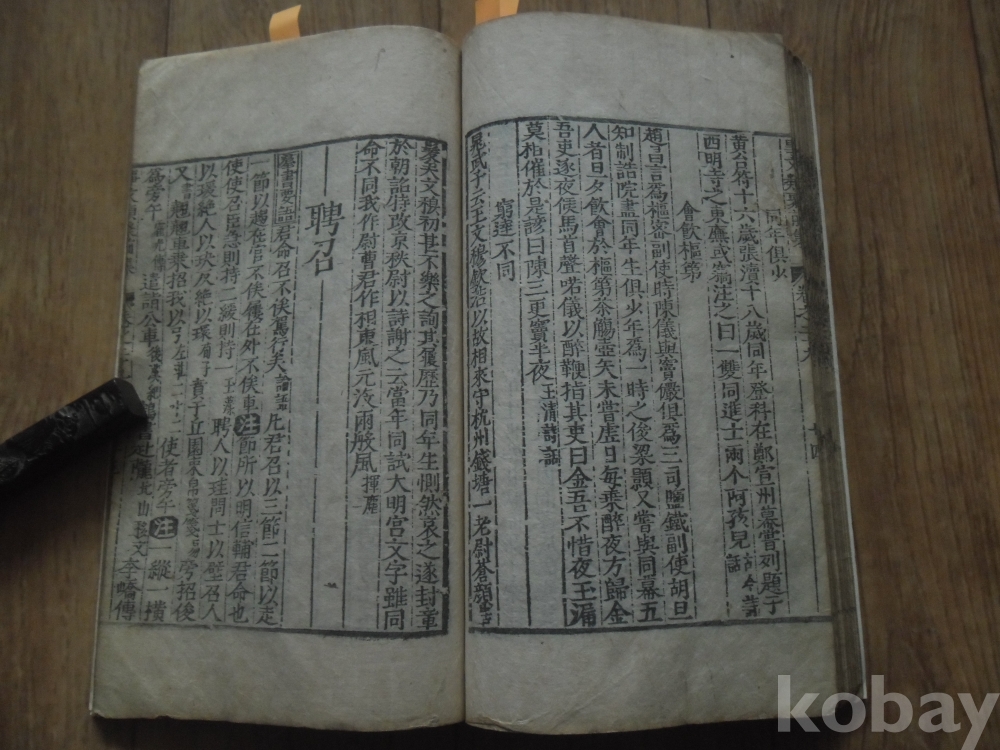 同年俱少
黃公符十六歲張瀆十八歲同年登科在鄭宣州幕嘗列題于
西明寺之東廡或竊注之曰一雙同進士兩个阿孩兒
會飲樞第
趙昌言爲樞密副使時陳儀與竇儼俱爲三司鹽鐵副使胡旦
知制誥院盡同年生俱少年爲一時之俊梁顥又嘗與同幕五
人者旦夕飲會於樞第茶觴壺矢未嘗虛日每乘醉夜方歸金
吾吏逐夜候馬首聲喏儀以醉鞭指其吏曰金吾不惜夜玉漏
莫相催於是諺曰陳三更竇半夜 玉淸詩話
窮達不同
王文穆欽若以故相來守杭州錢塘一老尉蒼顏
髮矣文穆初甚不樂之詢其履歷乃同年生惻然哀之遂封章
於朝詔特改京秩尉以詩謝之云當年同試大明宮文字雖同
命不同我作尉曹君作相東風元沒兩般風 揮麈
聘召
群書要語 君命召不俟駕行矣 論語 凡君召以三節二節以走
一節以趨在官不俟屨在外不俟車 注 節所以明信輔君命也
使使召臣急則持二緩則持一 聘人以珪問士以璧召人
以瑗絶人以玦反絶以環 賁于丘園束帛戔戔
又 翹翹車乘招我以弓 使者旁午 注 一縱一橫
爲旁午 遣詣公車
kobay